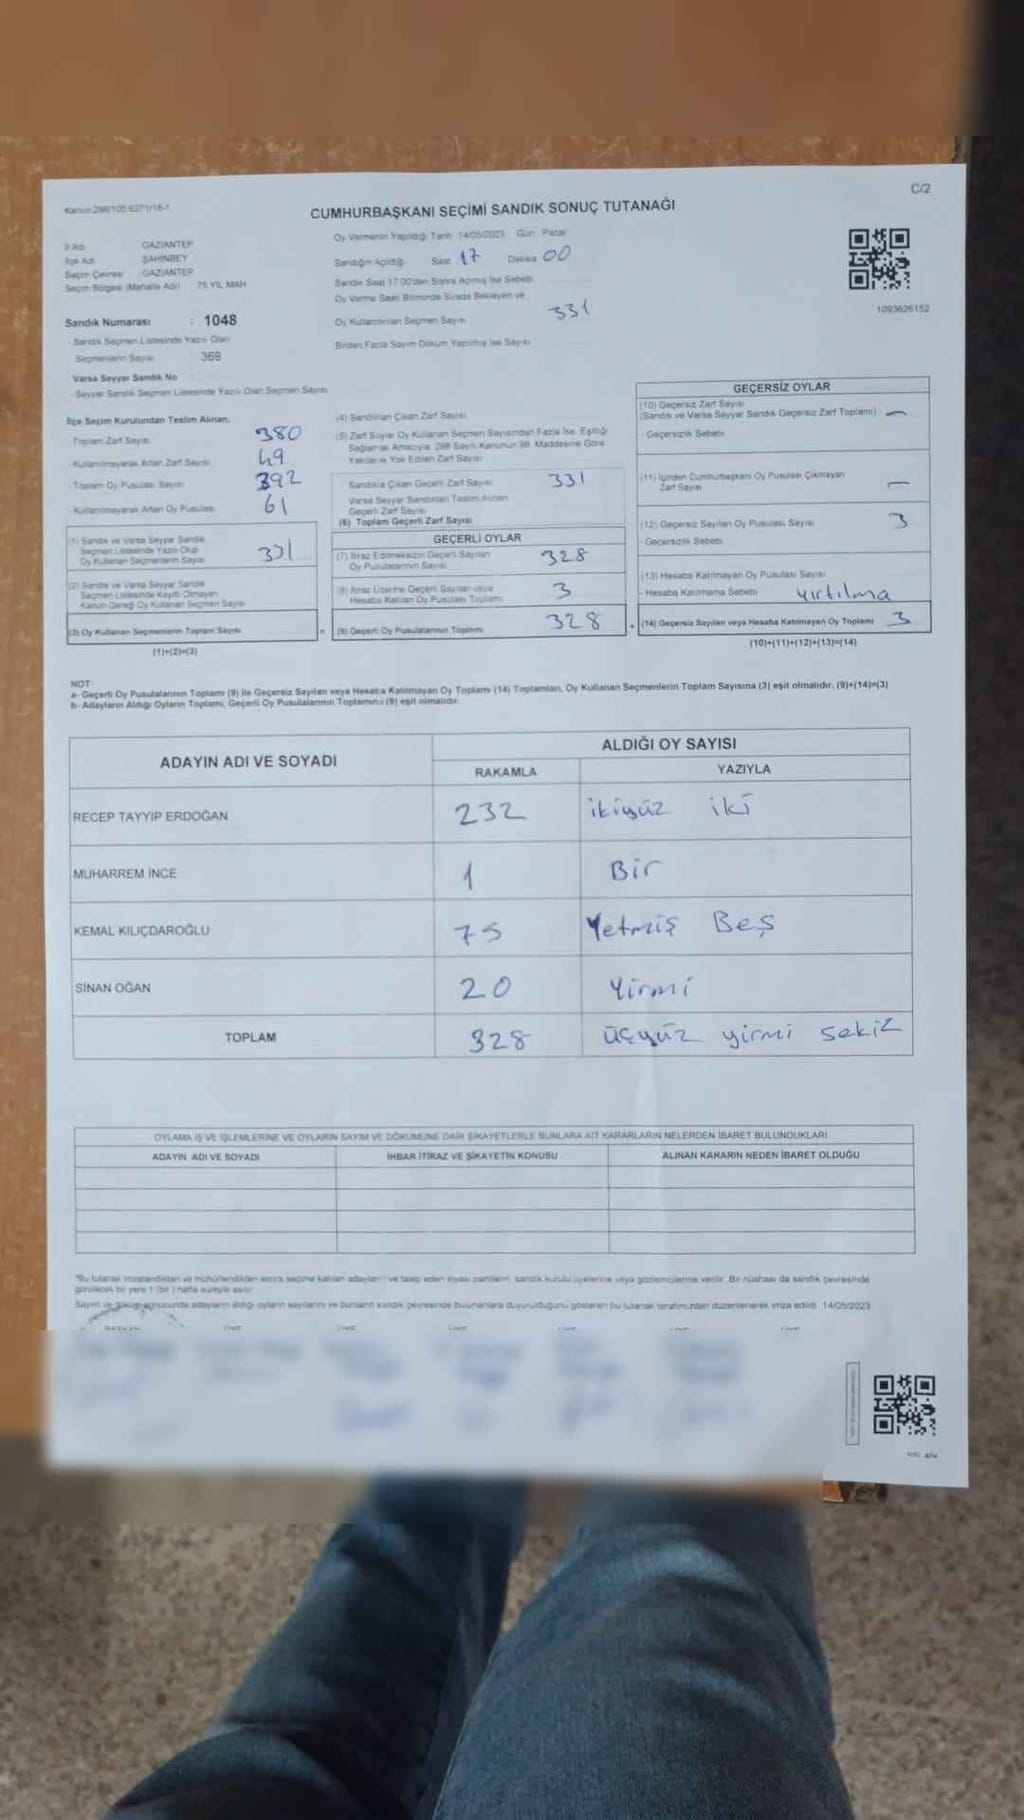 C/2
Kanun:298/105 6271/16-1
CUMHURBAŞKANI SEÇİMİ SANDIK SONUÇ TUTANAĞI
İl Adı GAZİANTEP
İlçe Adı ŞAHİNBEY
Seçim Çevresi GAZİANTEP
Seçim Bölgesi (Mahalle Adı) 75.YIL MAH
Oy Vermenin Yapıldığı Tarih 14/05/2023 Gün: Pazar
Sandığın Açıldığı Saat 17 Dakika 00
Sandık Saat 17.00'den Sonra Açılmış İse Sebebi
Oy Verme Saati Bitiminde Sırada Bekleyen ve
Oy Kullandırılan Seçmen Sayısı 331
Birden Fazla Sayım Döküm Yapılmış İse Sayısı
1093626152
Sandık Numarası : 1048
- Sandık Seçmen Listesinde Yazılı Olan
Seçmenlerin Sayısı 369
Varsa Seyyar Sandık No
- Seyyar Sandık Seçmen Listesinde Yazılı Olan Seçmen Sayısı
İlçe Seçim Kurulundan Teslim Alınan:
Toplam Zarf Sayısı 380
- Kullanılmayarak Artan Zarf Sayısı 49
- Toplam Oy Pusulası Sayısı 392
- Kullanılmayarak Artan Oy Pusulası 61
(1) Sandık ve Varsa Seyyar Sandık
Seçmen Listesinde Yazılı Olup
Oy Kullanan Seçmenlerin Sayısı 331
(2) Sandık ve Varsa Seyyar Sandık
Seçmen Listesinde Kayıtlı Olmayan
Kanun Gereği Oy Kullanan Seçmen Sayısı
(3) Oy Kullanan Seçmenlerin Toplam Sayısı
(1)+(2)=(3)
(4) Sandıktan Çıkan Zarf Sayısı
(5) Zarf Sayısı Oy Kullanan Seçmen Sayısından Fazla İse, Eşitliği
Sağlamak Amacıyla, 298 Sayılı Kanunun 98. Maddesine Göre
Yakılarak Yok Edilen Zarf Sayısı
Sandıkta Çıkan Geçerli Zarf Sayısı 331
Varsa Seyyar Sandıktan Teslim Alınan
Geçerli Zarf Sayısı
(6) Toplam Geçerli Zarf Sayısı
GEÇERLİ OYLAR
(7) İtiraz Edilmeksizin Geçerli Sayılan
Oy Pusulalarının Sayısı 328
(8) İtiraz Üzerine Geçerli Sayılan veya
Hesaba Katılan Oy Pusulası Toplamı 3
= (9) Geçerli Oy Pusulalarının Toplamı 328
GEÇERSİZ OYLAR
(10) Geçersiz Zarf Sayısı
(Sandık ve Varsa Seyyar Sandık Geçersiz Zarf Toplamı) —
- Geçersizlik Sebebi
(11) İçinden Cumhurbaşkanı Oy Pusulası Çıkmayan
Zarf Sayısı —
(12) Geçersiz Sayılan Oy Pusulası Sayısı 3
- Geçersizlik Sebebi
(13) Hesaba Katılmayan Oy Pusulası Sayısı
- Hesaba Katılmama Sebebi yırtılma
+ (14) Geçersiz Sayılan veya Hesaba Katılmayan Oy Toplamı 3
(10)+(11)+(12)+(13)=(14)
NOT:
a- Geçerli Oy Pusulalarının Toplamı (9) ile Geçersiz Sayılan veya Hesaba Katılmayan Oy Toplamı (14) Toplamları, Oy Kullanan Seçmenlerin Toplam Sayısına (3) eşit olmalıdır. (9)+(14)=(3)
b- Adayların Aldığı Oyların Toplamı, Geçerli Oy Pusulalarının Toplamına (9) eşit olmalıdır.
ADAYIN ADI VE SOYADI ALDIĞI OY SAYISI
RAKAMLA YAZIYLA
RECEP TAYYİP ERDOĞAN 232 ikiyüz iki
MUHARREM İNCE 1 Bir
KEMAL KILIÇDAROĞLU 75 Yetmiş Beş
SİNAN OĞAN 20 Yirmi
TOPLAM 328 üçyüz yirmi sekiz
OYLAMA İŞ VE İŞLEMLERİNE VE OYLARIN SAYIM VE DÖKÜMÜNE DAİR ŞİKAYETLERLE BUNLARA AİT KARARLARIN NELERDEN İBARET BULUNDUKLARI
ADAYIN ADI VE SOYADI İHBAR İTİRAZ VE ŞİKAYETİN KONUSU ALINAN KARARIN NEDEN İBARET OLDUĞU
*Bu tutanak imzalandıktan ve mühürlendikten sonra seçime katılan adayların ve talep eden siyasi partilerin sandık kurulu üyelerine veya gözlemcilerine verilir. Bir nüshası da sandık çevresinde
görülecek bir yere 1 (bir) hafta süreyle asılır.
Sayım ve döküm sonucunda adayların aldığı oyların sayılarını ve bunların sandık çevresinde bulunanlara duyurulduğunu gösteren bu tutanak tarafımızdan düzenlenerek imza edildi. 14/05/2023